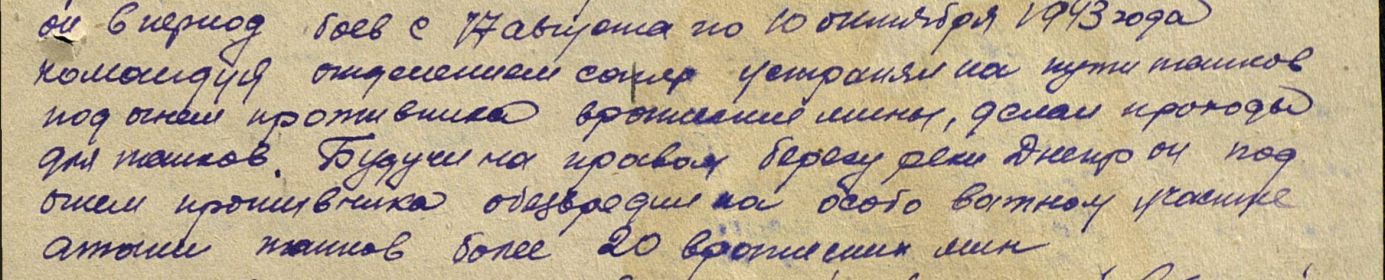 он в период боев с 17 августа по 10 октября 1943 года
командуя отделением сапер устранял на пути танков
под огнем противника вражеские мины, делал проходы
для танков. Будучи на правом берегу реки Днепр он под
огнем противника обезвредил на особо важном участке
атаки танков более 20 вражеских мин